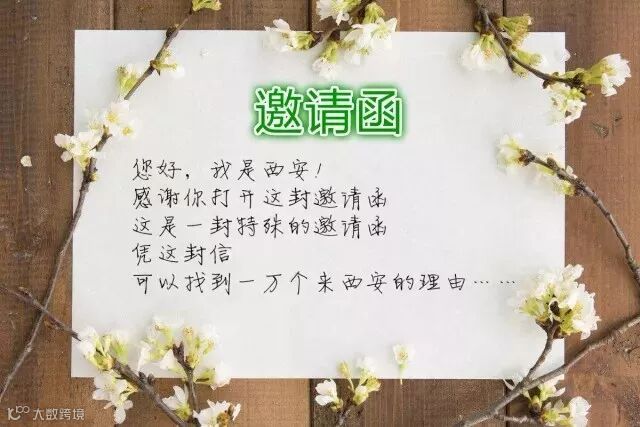 邀请函
您好，我是西安！
感谢你打开这封邀请函
这是一封特殊的邀请函
凭这封信
可以找到一万个来西安的理由……
大数跨境